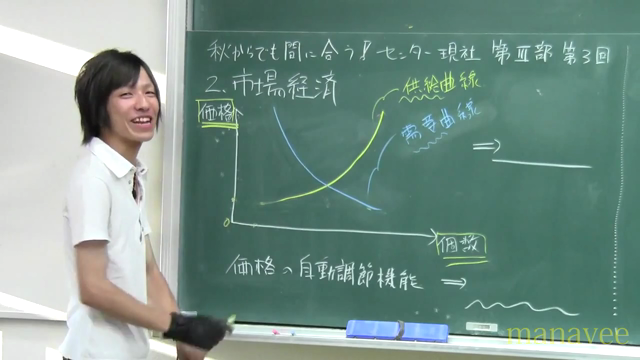 秋からでも間に合う!センター現社 第Ⅲ部 第3回
2.市場経済
価格
供給曲線
需要曲線
⇒
0
個数
価格の自動調節機能 ⇒
manavee